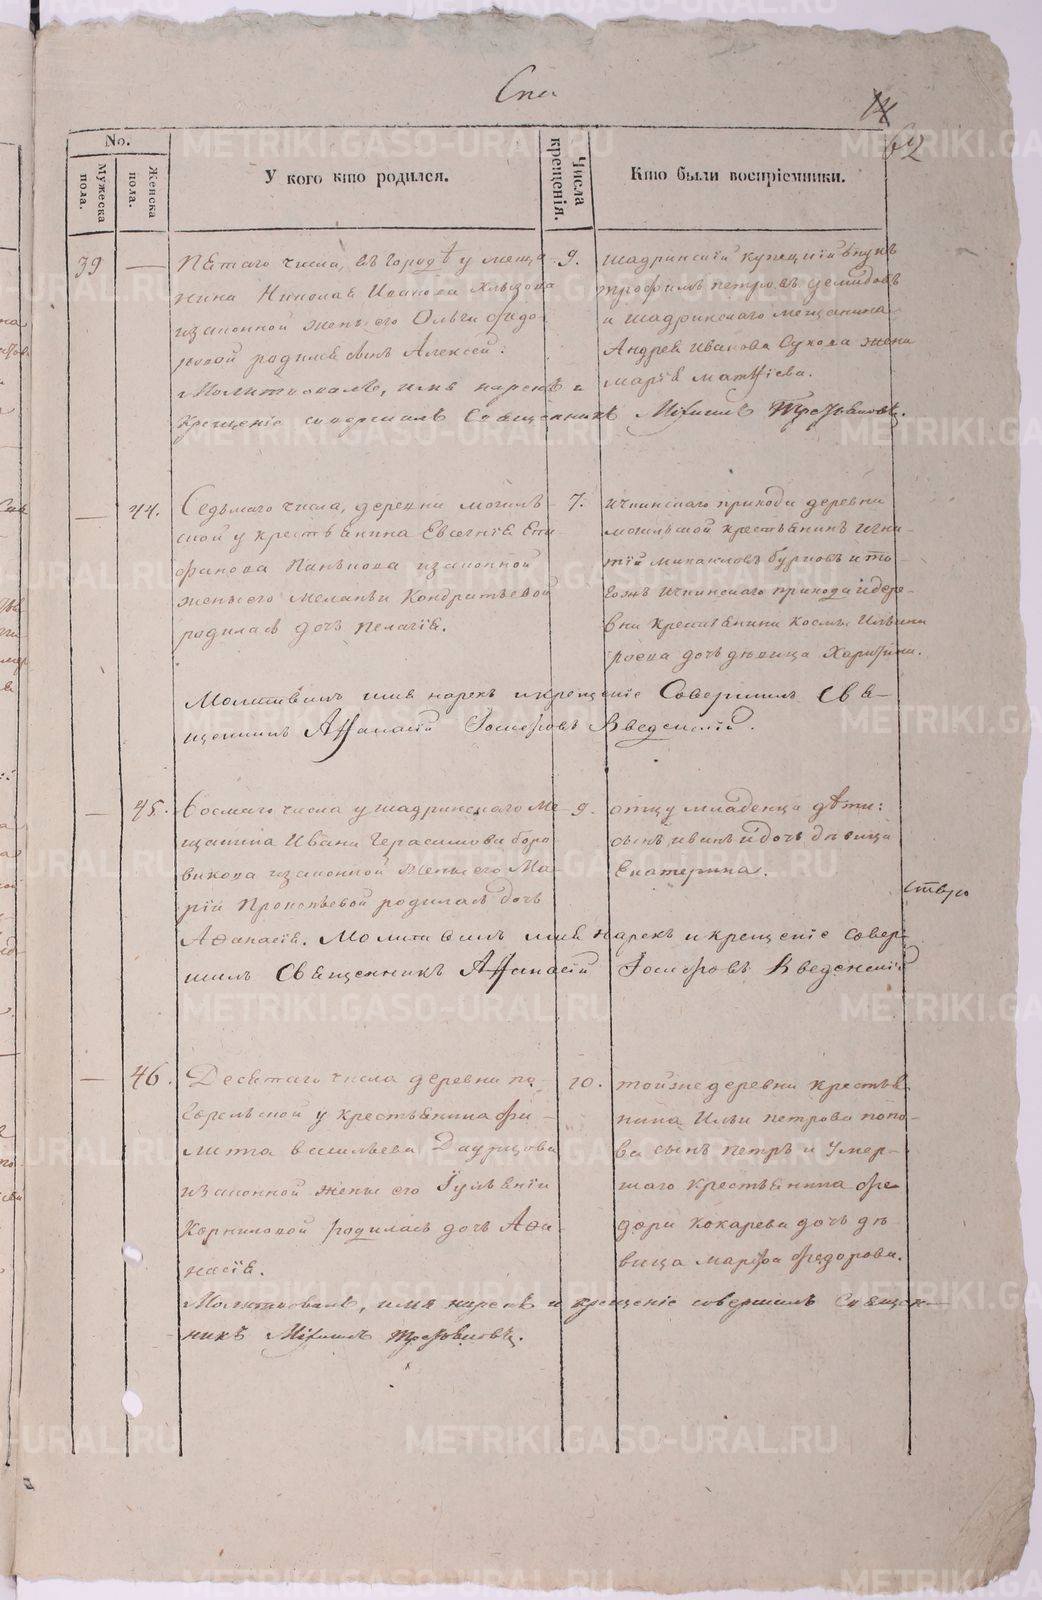 14
62
No.
Мужеска пола.
Женска пола.
У кого кто родился.
Числа крещенія.
Кто были воспріемники.
39
Пѣтаго числа, въ городѣ у меща-
нина Николая Иванова
изаконной жены его Ольги Федо-
ровой родился сынъ Алексѣй.
Молитвовалъ, имя нарекъ и
крещеніе совершалъ Священникъ
9.
Шадринскій купецкій внукъ
Трофимъ Петровъ Демидовъ
и Шадринскаго мещанина
Андрея Иванова Сухова жена
Марія Матѳіева.
44.
Седьмаго числа, деревни Могиль-
ской у крестьянина Евсегнѣя Епи-
фанова изаконной
жены его Меланьи Кондратьевой
родилась дочь Пелагія.
Молитвилъ имя нарекъ и крещеніе Совершилъ Свя-
щенникъ Аѳанасій Іосифовъ Введенскій.
7.
Ичкинскаго прихода деревни
Могильской крестьянинъ Игна-
тій Михаиловъ Бурковъ и то-
гожъ Ичкинскаго прихода и дере-
вни крестьянина Космы
дочь дѣвица
45.
Восмаго числа у Шадринскаго Ме-
щанина Ивана Герасимова Боро-
викова изаконной Жены его Ма-
рій Прокопьевой родилась дочь
Аѳанасія. Молитвилъ имя нарекъ и крещеніе совер-
шилъ Священникъ Аѳанасій Іосифовъ Введенскій
9.
отцу младенца дѣти:
сынъ иванъ и дочь дѣвица
Екатерина.
46.
Десятаго числа деревни По-
горельской у крестьянина Фи-
липа Васильева Даурцова
изаконной жены его Іуліаніи
Корниловой родилась дочь Аѳа-
насія.
Молитвовалъ, имя нарекъ и крещеніе совершилъ Священ-
никъ
10.
тойже деревни крестья-
нина Ильи Петрова Попо-
ва сынъ Петръ и Умер-
шаго крестьянина Фе-
дора Кокарева дочь дѣ-
вица Марѳа Федорова.
METRIKI.GASO-URAL.RU